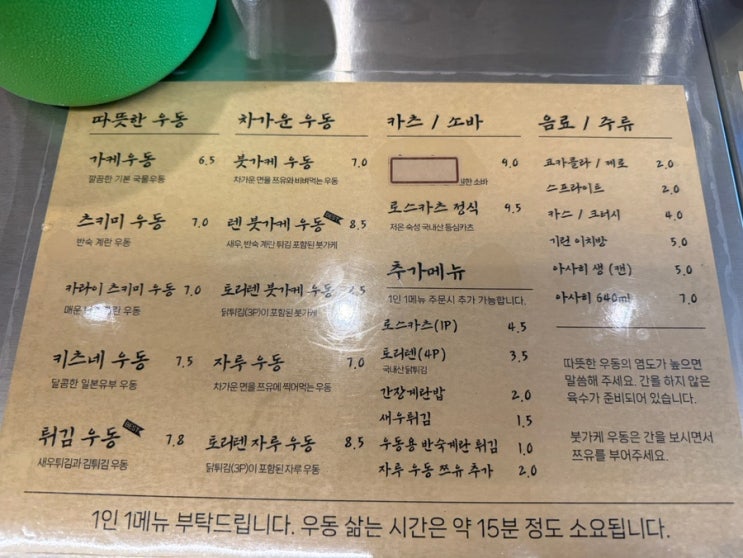 따뜻한 우동
가케우동 6.5
깔끔한 기본 국물우동
츠키미 우동 7.0
반숙 계란 우동
카라이 츠키미 우동 7.0
매운 우동
키츠네 우동 7.5
달콤한 일본유부 우동
튀김 우동 BEST 7.8
새우튀김과 김튀김 우동
차가운 우동
붓가케 우동 7.0
차가운 면을 쯔유와 비벼먹는 우동
텐 붓가케 우동 BEST 8.5
새우, 반숙 계란 튀김 포함된 붓가케
토리텐 붓가케 우동 .5
닭튀김(3P)이 포함된 붓가케
자루 우동 7.0
차가운 면을 쯔유에 찍어먹는 우동
토리텐 자루 우동 8.5
닭튀김(3P)이 포함된 자루 우동
카츠 / 소바
9.0
소바
로스카츠 정식 9.5
저온 숙성 국내산 등심카츠
추가메뉴
1인 1메뉴 주문시 추가 가능합니다.
로스카츠(1P) 4.5
토리텐(4P) 3.5
국내산 닭튀김
간장계란밥 2.0
새우튀김 1.5
우동용 반숙계란 튀김 1.0
자루 우동 쯔유 추가 2.0
음료 / 주류
코카콜라 / 제로 2.0
스프라이트 2.0
카스 / 크러시 4.0
기린 이치방 5.0
아사히 생 (캔) 5.0
아사히 640ml 7.0
따뜻한 우동의 염도가 높으면
말씀해 주세요. 간을 하지 않은
육수가 준비되어 있습니다.
붓가케 우동은 간을 보시면서
쯔유를 부어주세요.
1인 1메뉴 부탁드립니다. 우동 삶는 시간은 약 15분 정도 소요됩니다.